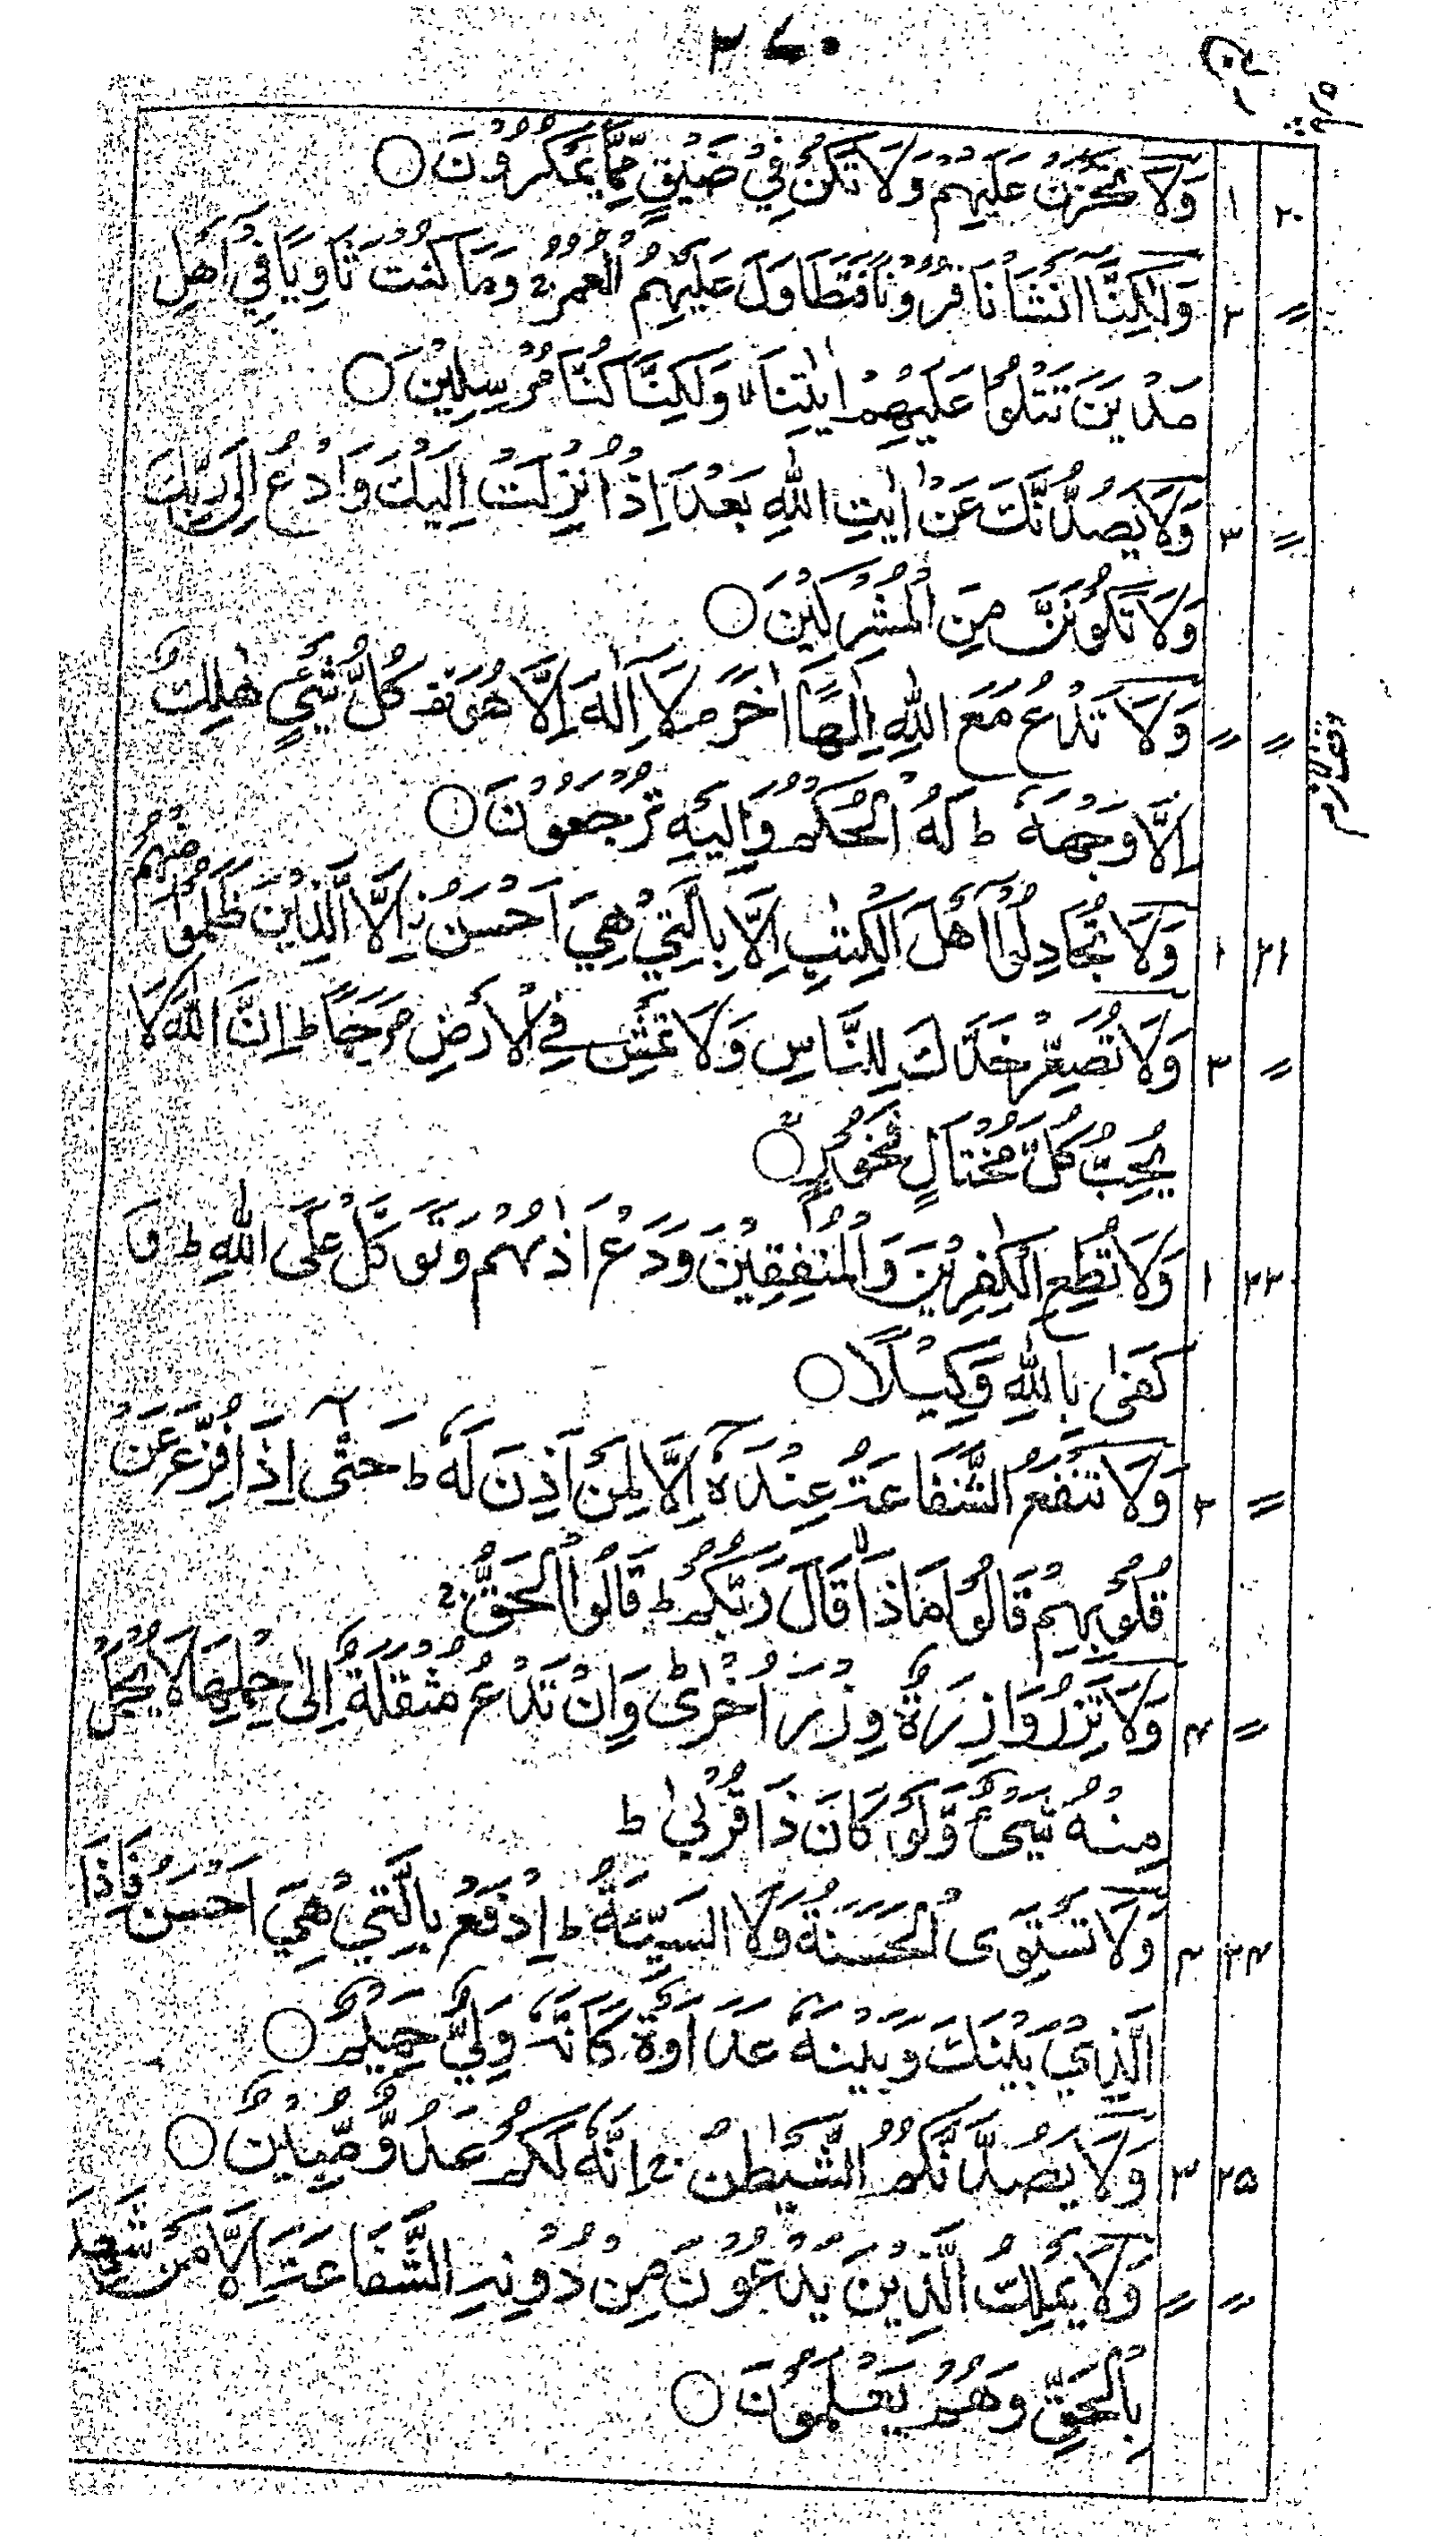 ۳۷۰
۲۰ ۱ وَلَا تَحْزَنْ عَلَيْهِمْ وَلَا تَكُنْ فِيْ ضَيْقٍ مِّمَّا يَمْكُرُوْنَ ○
〃 ۲ وَلٰكِنَّا اَنْشَاْنَا قُرُوْنًا فَتَطَاوَلَ عَلَيْهِمُ الْعُمُرُ ۚ وَمَا كُنْتَ ثَاوِيًا فِيْ اَهْلِ
مَدْيَنَ تَتْلُوْا عَلَيْهِمْ اٰيٰتِنَا ۙ وَلٰكِنَّا كُنَّا مُرْسِلِيْنَ ○
〃 ۳ وَلَا يَصُدُّنَّكَ عَنْ اٰيٰتِ اللّٰهِ بَعْدَ اِذْ اُنْزِلَتْ اِلَيْكَ وَادْعُ اِلٰى رَبِّكَ
وَلَا تَكُوْنَنَّ مِنَ الْمُشْرِكِيْنَ ○
〃 〃 وَلَا تَدْعُ مَعَ اللّٰهِ اِلٰهًا اٰخَرَ ۘ لَآ اِلٰهَ اِلَّا هُوَ ۣ كُلُّ شَيْءٍ هَالِكٌ
وقف لازم
اِلَّا وَجْهَهٗ ط لَهُ الْحُكْمُ وَاِلَيْهِ تُرْجَعُوْنَ ○
۲۱ ۱ وَلَا تُجَادِلُوْٓا اَهْلَ الْكِتٰبِ اِلَّا بِالَّتِيْ هِيَ اَحْسَنُ ۖ اِلَّا الَّذِيْنَ ظَلَمُوْا مِنْهُمْ
〃 ۳ وَلَا تُصَعِّرْ خَدَّكَ لِلنَّاسِ وَلَا تَمْشِ فِي الْاَرْضِ مَرَحًا ط اِنَّ اللّٰهَ لَا
يُحِبُّ كُلَّ مُخْتَالٍ فَخُوْرٍ ○
۲۲ ۱ وَلَا تُطِعِ الْكٰفِرِيْنَ وَالْمُنٰفِقِيْنَ وَدَعْ اَذٰىهُمْ وَتَوَكَّلْ عَلَى اللّٰهِ ط وَ
كَفٰى بِاللّٰهِ وَكِيْلًا ○
〃 ۳ وَلَا تَنْفَعُ الشَّفَاعَةُ عِنْدَهٗٓ اِلَّا لِمَنْ اَذِنَ لَهٗ ط حَتّٰٓى اِذَا فُزِّعَ عَنْ
قُلُوْبِهِمْ قَالُوْا مَاذَا ۙ قَالَ رَبُّكُمْ ط قَالُوا الْحَقَّ ۚ
〃 ۴ وَلَا تَزِرُ وَازِرَةٌ وِّزْرَ اُخْرٰى ط وَاِنْ تَدْعُ مُثْقَلَةٌ اِلٰى حِمْلِهَا لَا يُحْمَلْ
مِنْهُ شَيْءٌ وَّلَوْ كَانَ ذَا قُرْبٰى ط
۲۴ ۴ وَلَا تَسْتَوِى الْحَسَنَةُ وَلَا السَّيِّئَةُ ط اِدْفَعْ بِالَّتِيْ هِيَ اَحْسَنُ فَاِذَا
الَّذِيْ بَيْنَكَ وَبَيْنَهٗ عَدَاوَةٌ كَاَنَّهٗ وَلِيٌّ حَمِيْمٌ ○
۲۵ ۳ وَلَا يَصُدَّنَّكُمُ الشَّيْطٰنُ ۚ اِنَّهٗ لَكُمْ عَدُوٌّ مُّبِيْنٌ ○
〃 〃 وَلَا يَمْلِكُ الَّذِيْنَ يَدْعُوْنَ مِنْ دُوْنِهِ الشَّفَاعَةَ اِلَّا مَنْ شَهِدَ
بِالْحَقِّ وَهُمْ يَعْلَمُوْنَ ○